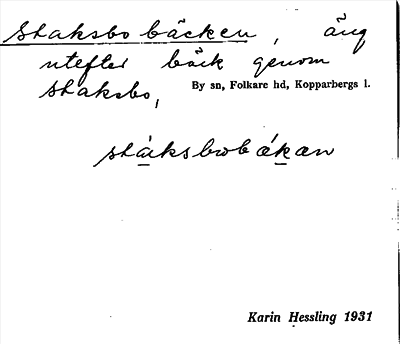 Staksbo bäcken, äng
utefter bäck genom
Staksbo, By sn, Folkare hd, Kopparbergs l.
stáksbωbǽkan
Karin Hessling 1931